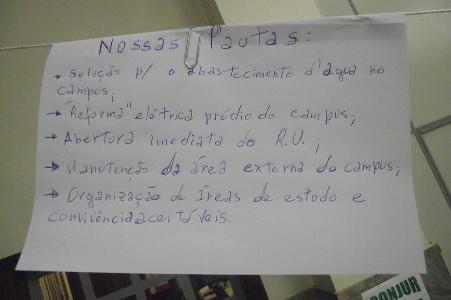 Nossas Pautas:
→ Solução p/ o abastecimento d'água no
campus;
→ "Reforma" elétrica prédio do campus;
→ Abertura imediata do R.U.;
→ Manutenção da área externa do campus;
→ Organização de áreas de estudo e
convivência aceitáveis.
CONJUR